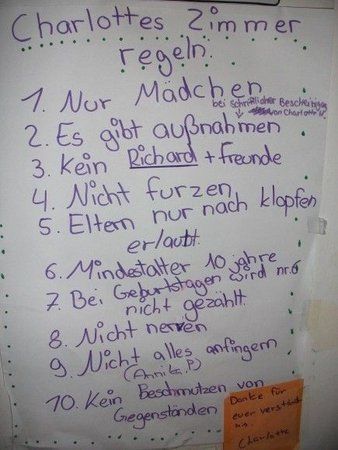 Charlottes Zimmer
regeln.
1. Nur Mädchen
bei Schriftlicher Bescheinigung
von Charlotte
2. Es gibt außnahmen
3. Kein Richard + freunde
4. Nicht furzen
5. Eltern nur nach klopfen
erlaubt
6. Mindestalter 10 jahre
7. Bei Geburtstagen wird nr. 6
nicht gezählt
8. Nicht nerven
9. Nicht alles anfingern
(Annika.P)
10. Kein Beschmutzen von
Gegenständen
Danke für
euer
Charlotte